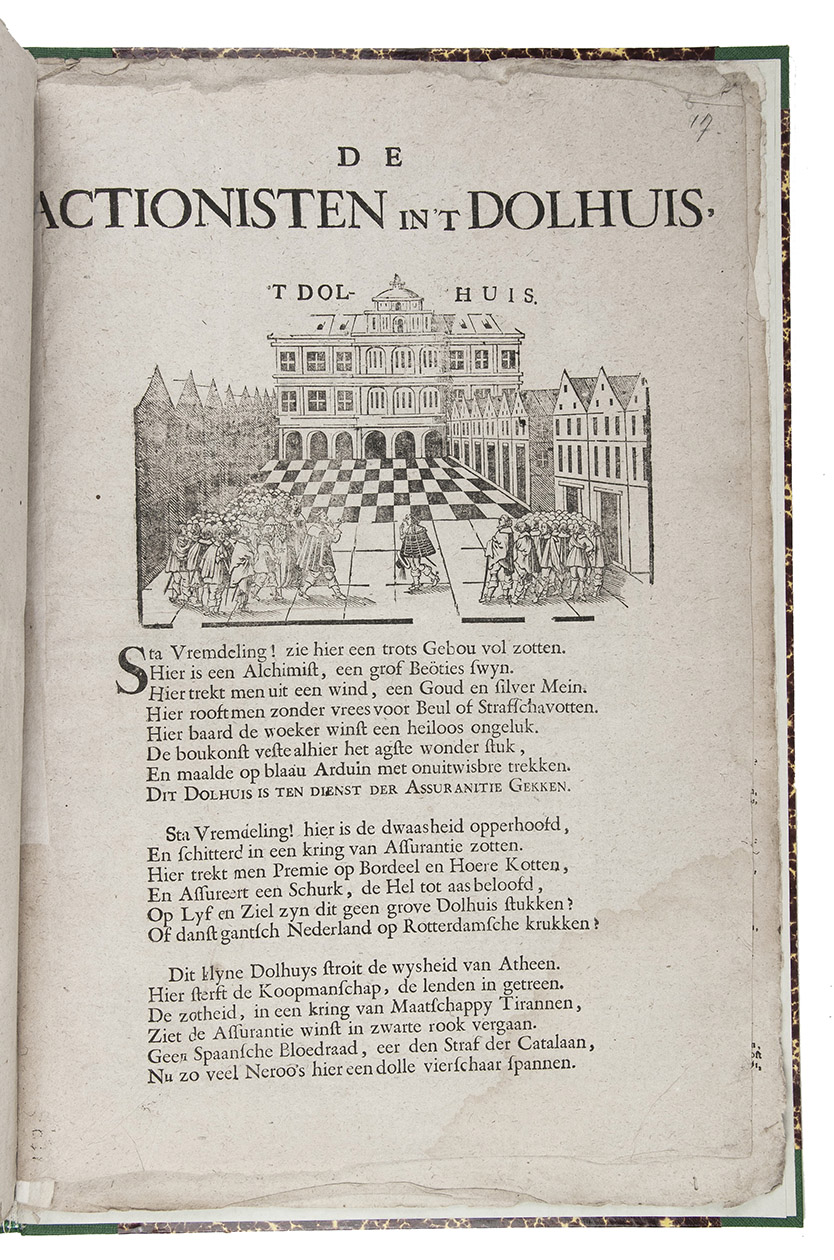 17
DE
ACTIONISTEN IN'T DOLHUIS,
'T DOL- HUIS.
Sta Vremdeling! zie hier een trots Gebou vol zotten.
Hier is een Alchimiſt, een grof Beöties ſwyn.
Hier trekt men uit een wind, een Goud en ſilver Mein.
Hier rooft men zonder vrees voor Beul of Strafſchavotten.
Hier baard de woeker winſt een heiloos ongeluk.
De boukonſt veſte alhier het agſte wonder ſtuk,
En maalde op blaau Arduin met onuitwisbre trekken.
DIT DOLHUIS IS TEN DIENST DER ASSURANITIE GEKKEN.
Sta Vremdeling! hier is de dwaasheid opperhoofd,
En ſchitterd in een kring van Aſſurantie zotten.
Hier trekt men Premie op Bordeel en Hoere Kotten,
En Aſſureert een Schurk, de Hel tot aas beloofd,
Op Lyf en Ziel zyn dit geen grove Dolhuis ſtukken?
Of danſt gantſch Nederland op Rotterdamſche krukken?
Dit klyne Dolhuys ſtroit de wysheid van Atheen.
Hier ſterft de Koopmanſchap, de lenden in getreen.
De zotheid, in een kring van Maatſchappy Tirannen,
Ziet de Aſſurantie winſt in zwarte rook vergaan.
Geen Spaanſche Bloedraad, eer den Straf der Catalaan,
Nu zo veel Neroo's hier een dolle vierſchaar ſpannen.